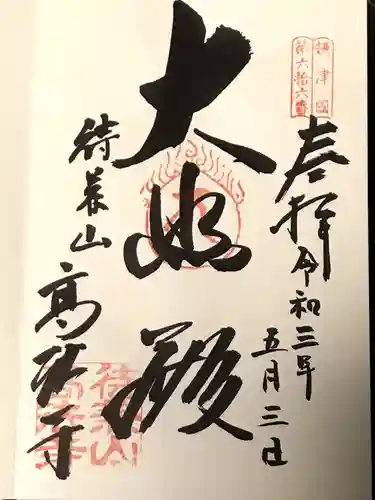 摂津國
第六拾六番
奉拝
令和三年
五月三日
大悲殿
待兼山
高法寺
待兼山
高法寺